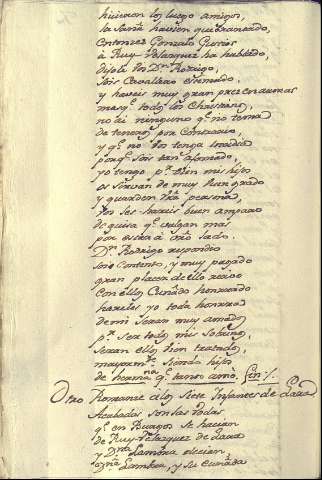 hicieron los luego amigos,
la saña havien quebrantado,
Entonzes Gonzalo Gustios
à Ruy Velazquez ha hablado,
dijole Dn Rodrigo,
sois Cavallero estimado,
y haveis muy gran prez en armas
mas qe todos los Christianos,
no ai ninguno qe no tema
de teneros por Contrario,
y qe no vos tenga imbidia
porqe sois tan afamado,
yo tengo pr bien mis hijos
os sirvan de muy buen grado
y guarden vra persona,
vos les hareis buen amparo
de guisa qe valgan mas
por estar à vro lado.
Dn Rodrigo respondio
soi contento, y muy pagado
gran placer de ello recivo
con ellos Cuñado honrrado
hareles yo toda honrra
de mi seran muy amados
pr ser todos mis sobrinos,
seran ellos bien tratados,
mayormte siendo hijos
de hermana qe tanto amo. Fin
Otro Romanze à los Siete Infantes de Lara
Acabadas son las bodas
qe en Burgos se hacian
de Ruy Velazquez de Lara
y Dña Lambra decian
Dña Lambra, y su Cuñada